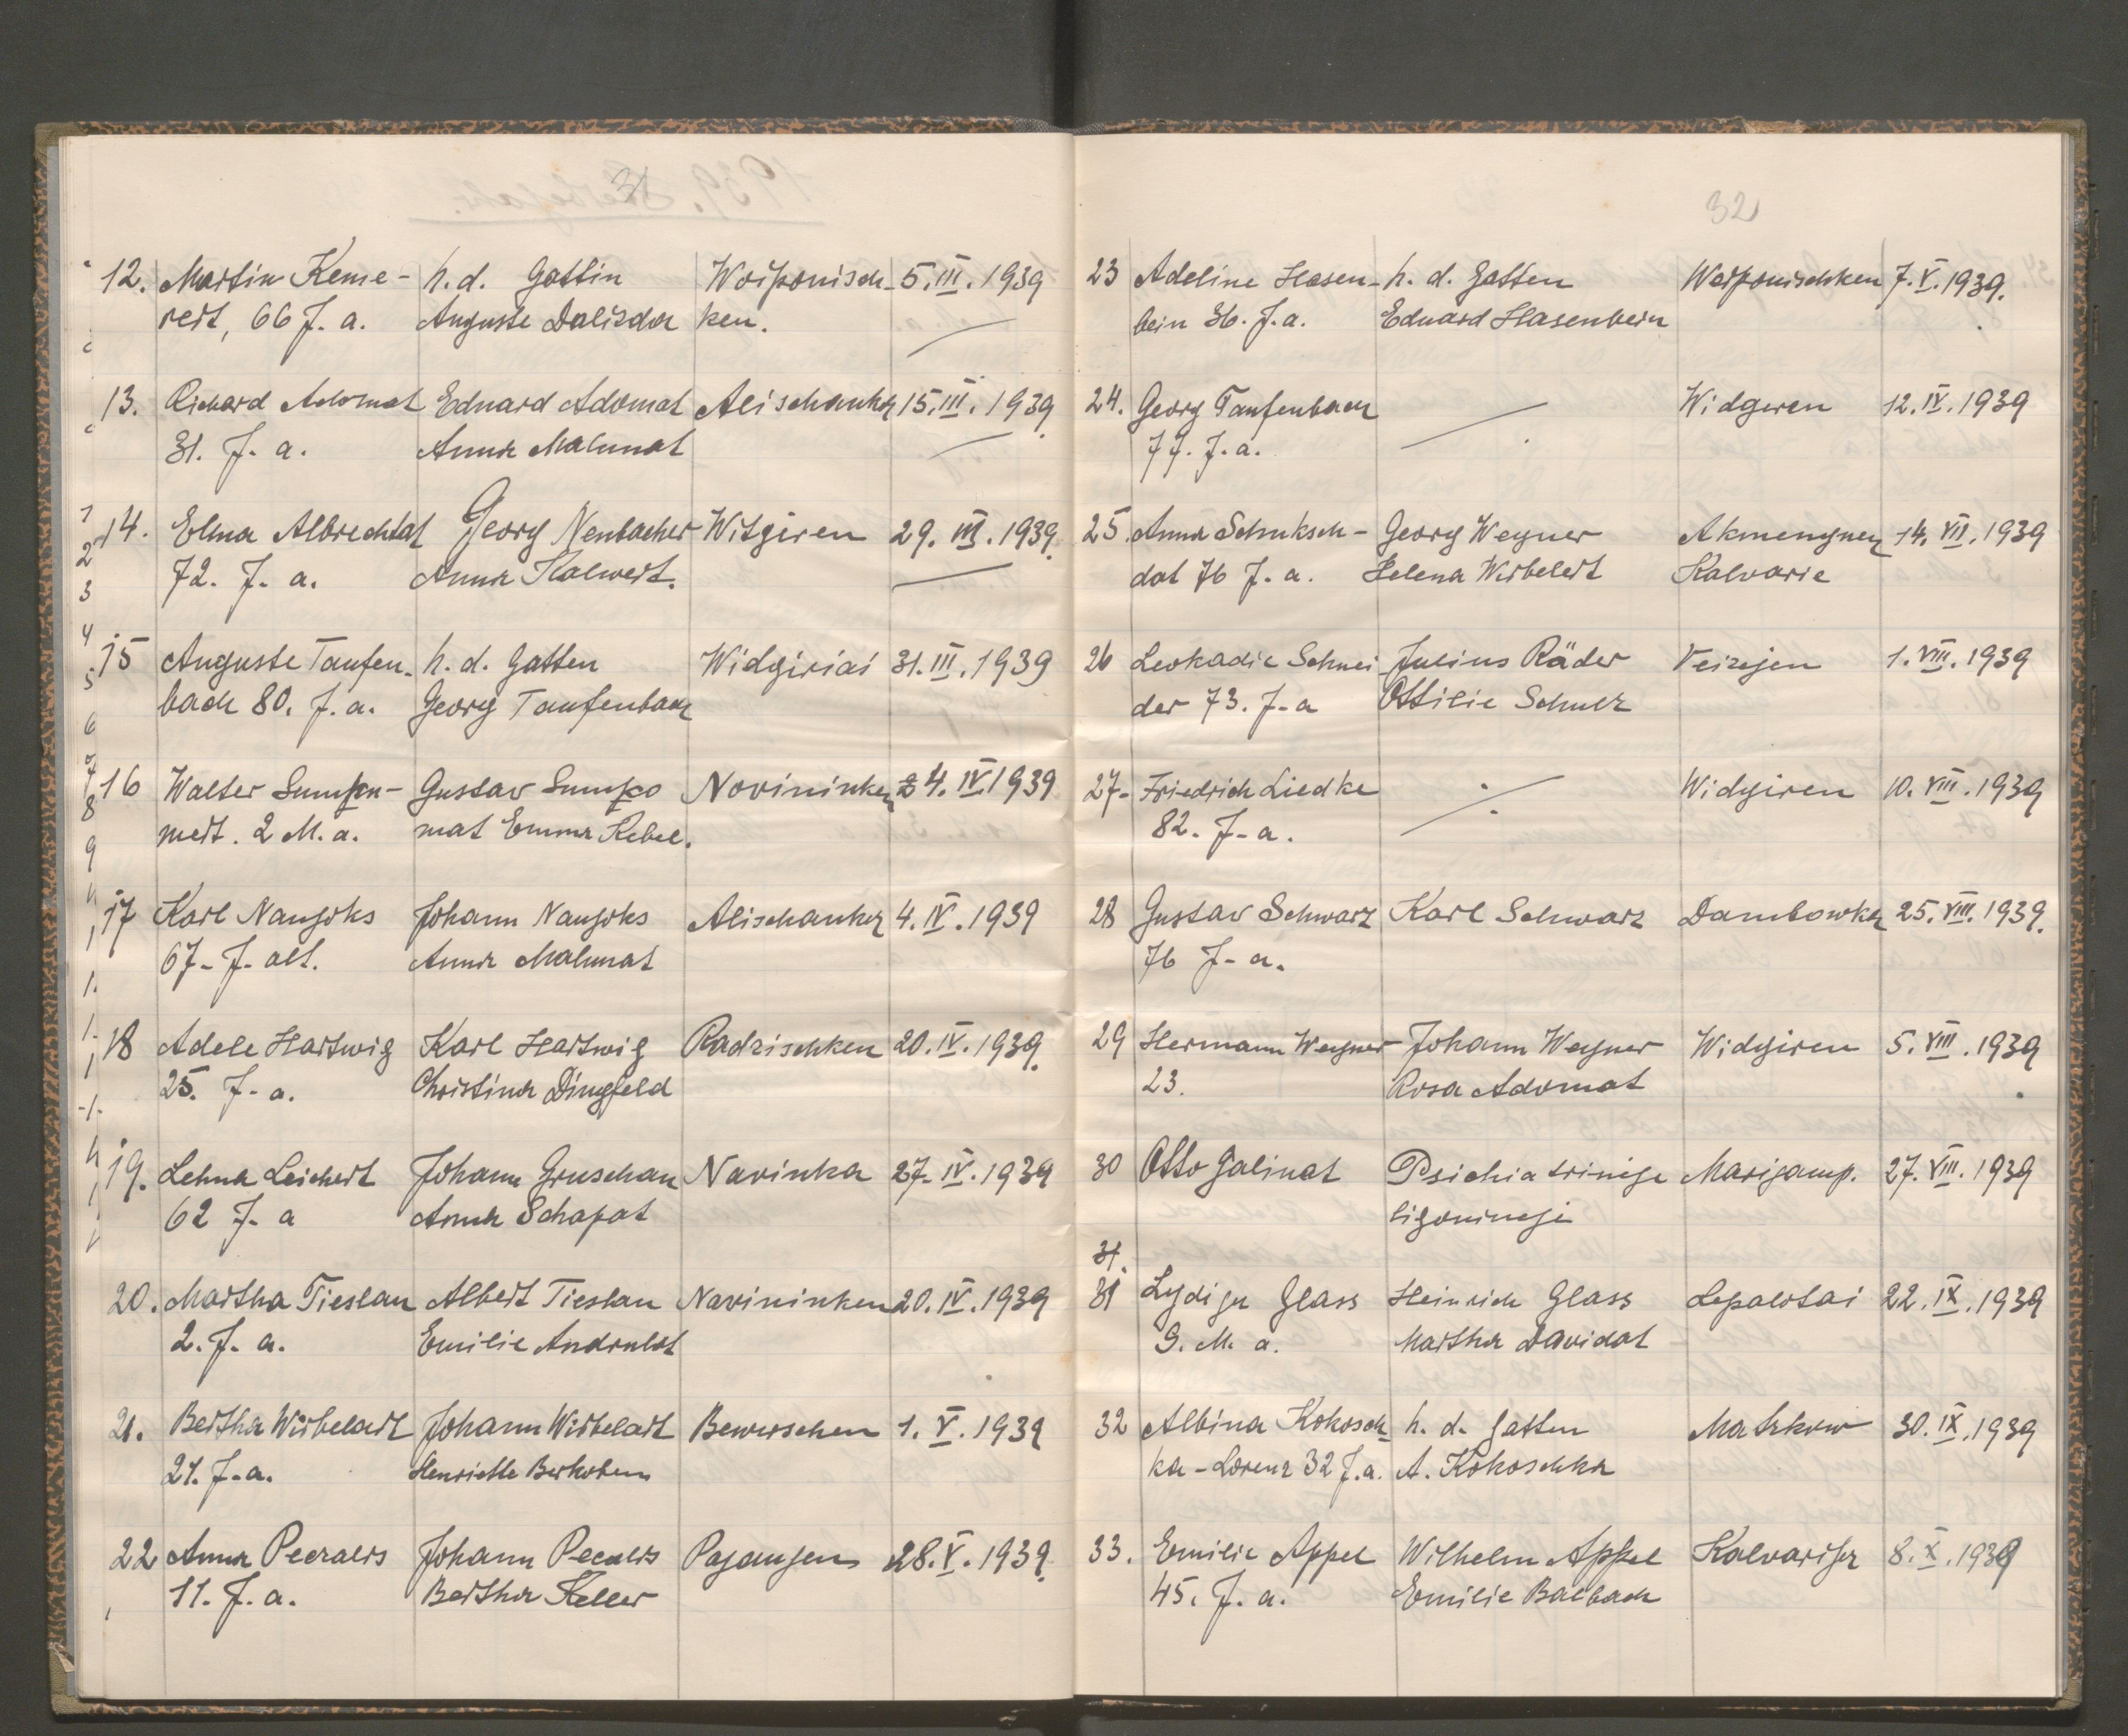 31
12. Martin Keme- h. d. Gattin Woiponisch- 5. III. 1939
reit, 66 J. a. Auguste Dalisda ken.
13. Richard Adomat Eduard Adomat Alischanka 15. III. 1939
31. J. a. Anna Malunat
14. Elma Albrechtat Georg Neubacher Witgiren 29. III. 1939.
72. J. a. Anna Kalweit.
15 Auguste Taufen- h. d. Gatten Widgiriai 31. III. 1939
bach 80. J. a. Georg Taufenbach
16 Walter Gustav Sumpo Novininken 4. IV. 1939
2 M. a. mat Emma Kebel.
17 Karl Naujoks Johann Naujoks Alischanka 4. IV. 1939
67 J. alt. Anna Malunat
18 Adele Hartwig Karl Hartwig Radzischken 20. IV. 1939.
25. J. a. Christina Dingfeld
19. Lehna Leichert Johann Gruschau Navinka 27. IV. 1939
62 J. a Anna Schapat
20. Martha Tieslau Albert Tieslau Navininken 20. IV. 1939
2. J. a. Emilie Andrulat
21. Bertha Wirbelart Johann Wirbelart 1. V. 1939
21. J. a. Henriette
22 Anna Johann Pajaujen 28. V. 1939.
11. J. a. Bertha Keller
32
23 Adeline Hasen- h. d. Gatten Waiponischken 7. V. 1939.
bein 36. J. a. Eduard Hasenbein
24. Georg Taufenbach Widgiren 12. IV. 1939
77. J. a.
25. Anna Schuksch- Georg Wegner Akmenynen 14. VII. 1939
dat 76 J. a. Helena Wirbeleit Kalvarie
26 Leokadie Schnei- Julius Räder Veizejen 1. VIII. 1939
der 73. J. a Ottilie Schulz
27- Friedrich Liedke Widgiren 10. VIII. 1939
82. J. a.
28 Gustav Schwarz Karl Schwarz Dambowka 25. VIII. 1939.
76 J. a.
29 Hermann Wegner Johann Wegner Widgiren 5. VIII. 1939
23. Rosa Adomat
30 Otto Galinat Psichiatrinėje Marijamp. 27. VIII. 1939
ligoninėje
31.
31 Lydija Glass Heinrich Glass Lepalotai 22. IX. 1939
9. M. a. Martha Davidat
32 Albina Kokosch- h. d. Gatten Matzkow 30. IX. 1939
ka-Lorenz 32 J. a. A. Kokoschka
33. Emilie Appel Wilhelm Appel Kalvarija 8. X. 1939
45. J. a. Emilie Balbach